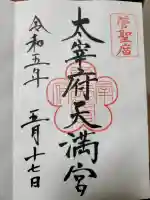 菅聖廟
太宰府天満宮
令和五年
五月十七日